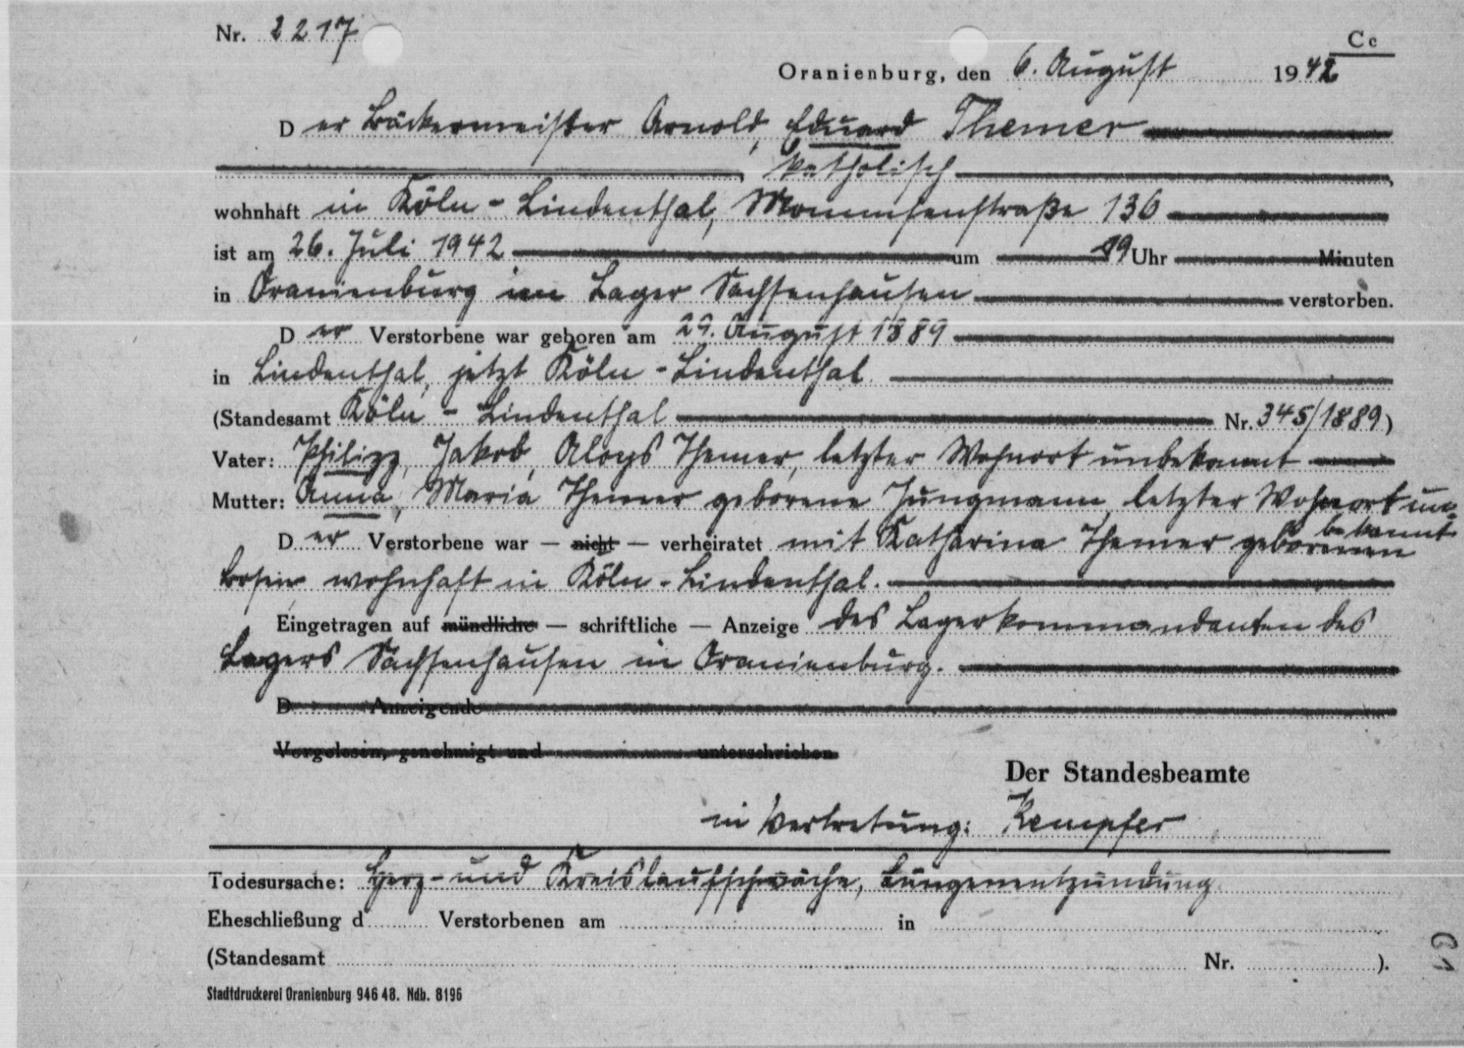 Nr. 2217
Cc
Oranienburg, den 6. August 1942
Der Bäckermeister Arnold, Eduard Themer
, katholisch,
wohnhaft in Köln - Lindenthal, Mommsenstraße 136
ist am 26. Juli 1942 um 19 Uhr Minuten
in Oranienburg im Lager Sachsenhausen verstorben.
Der Verstorbene war geboren am 29. August 1889
in Lindenthal, jetzt Köln - Lindenthal
(Standesamt Köln - Lindenthal Nr. 345/1889)
Vater: Philipp, Jakob, Aloys Themer, letzter Wohnort unbekannt
Mutter: Anna, Maria Themer geborene Jungmann, letzter Wohnort un-
bekannt
Der Verstorbene war — nicht — verheiratet mit Katharina Themer geborenen
wohnhaft in Köln - Lindenthal.
Eingetragen auf mündliche — schriftliche — Anzeige des Lagerkommandanten des
Lagers Sachsenhausen in Oranienburg.
D Anzeigende
Vorgelesen, genehmigt und unterschrieben
Der Standesbeamte
in Vertretung: Kempfer
Todesursache: Herz- und Kreislaufschwäche, Lungenentzündung
Eheschließung d Verstorbenen am in
(Standesamt Nr. ).
Stadtdruckerei Oranienburg 946 48. Ndb. 8196